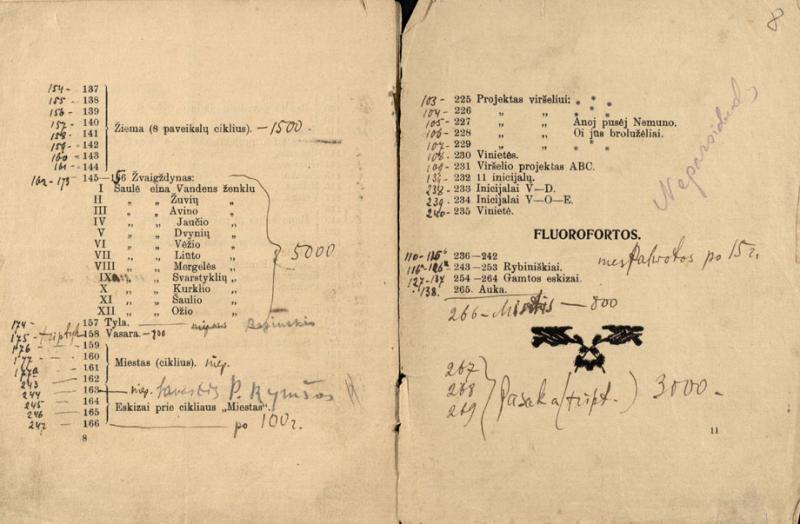 154- 137
155- 138
156- 139
157- 140
158- 141
159- 142
160- 143
161- 144
Žiema (8 paveikslų ciklius). - 1500.
162-173 145—156 Žvaigždynas:
I Saulė eina Vandens ženklu
II „ „ Žuvių „
III „ „ Avino „
IV „ „ Jaučio „
V „ „ Dvynių „
VI „ „ Vėžio „
VII „ „ Liūto „
VIII „ „ Mergelės „
IX „ „ Svarstyklių „
X „ „ Kurklio „
XI „ „ Šaulio „
XII „ „ Ožio „
5000
174- 157 Tyla.
175- 158 Vasara.
176- 159
177- 160
177a 161
243 - 162
244 - 163
245 - 164
246 - 165
247 - 166
Miestas (ciklius). niep.
niep. P. Rymšos
Eskizai prie cikliaus „Miestas".
po 100 r.
8
8
103- 225 Projektas viršeliui: * * *
104- 226 „ „
105- 227 „ „ Anoj pusėj Nemuno.
106- 228 „ „ Oi jūs broļužėliai.
107- 229 „ „ * * *
108- 230 Vinietės.
109- 231 Viršelio projektas ABC.
232 11 inicijalų.
238- 233 Inicijalai V—D.
239 234 Inicijalai V—O—E.
240- 235 Vinietė.
Neparsiduoda
FLUOROFORTOS.
236—242
243—253 Rybiniškiai.
254—264 Gamtos eskizai.
138. 265. Auka.
po 15 r.
266- 800
267
268
269
Pasaka (tript.) 3000 -
11